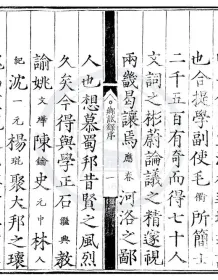 也合提學副使毛衢所簡士
二千五百有奇而得七十人
文詞之彬蔚論議之精邃視
兩畿曷讓焉應春河洛之鄙
試錄序 一
人也想慕蜀邦昔賢之風烈
久矣今得與學正石 典教
諭姚文 陳 史元中林人
紀沈一元楊琨聚大邦之瓌